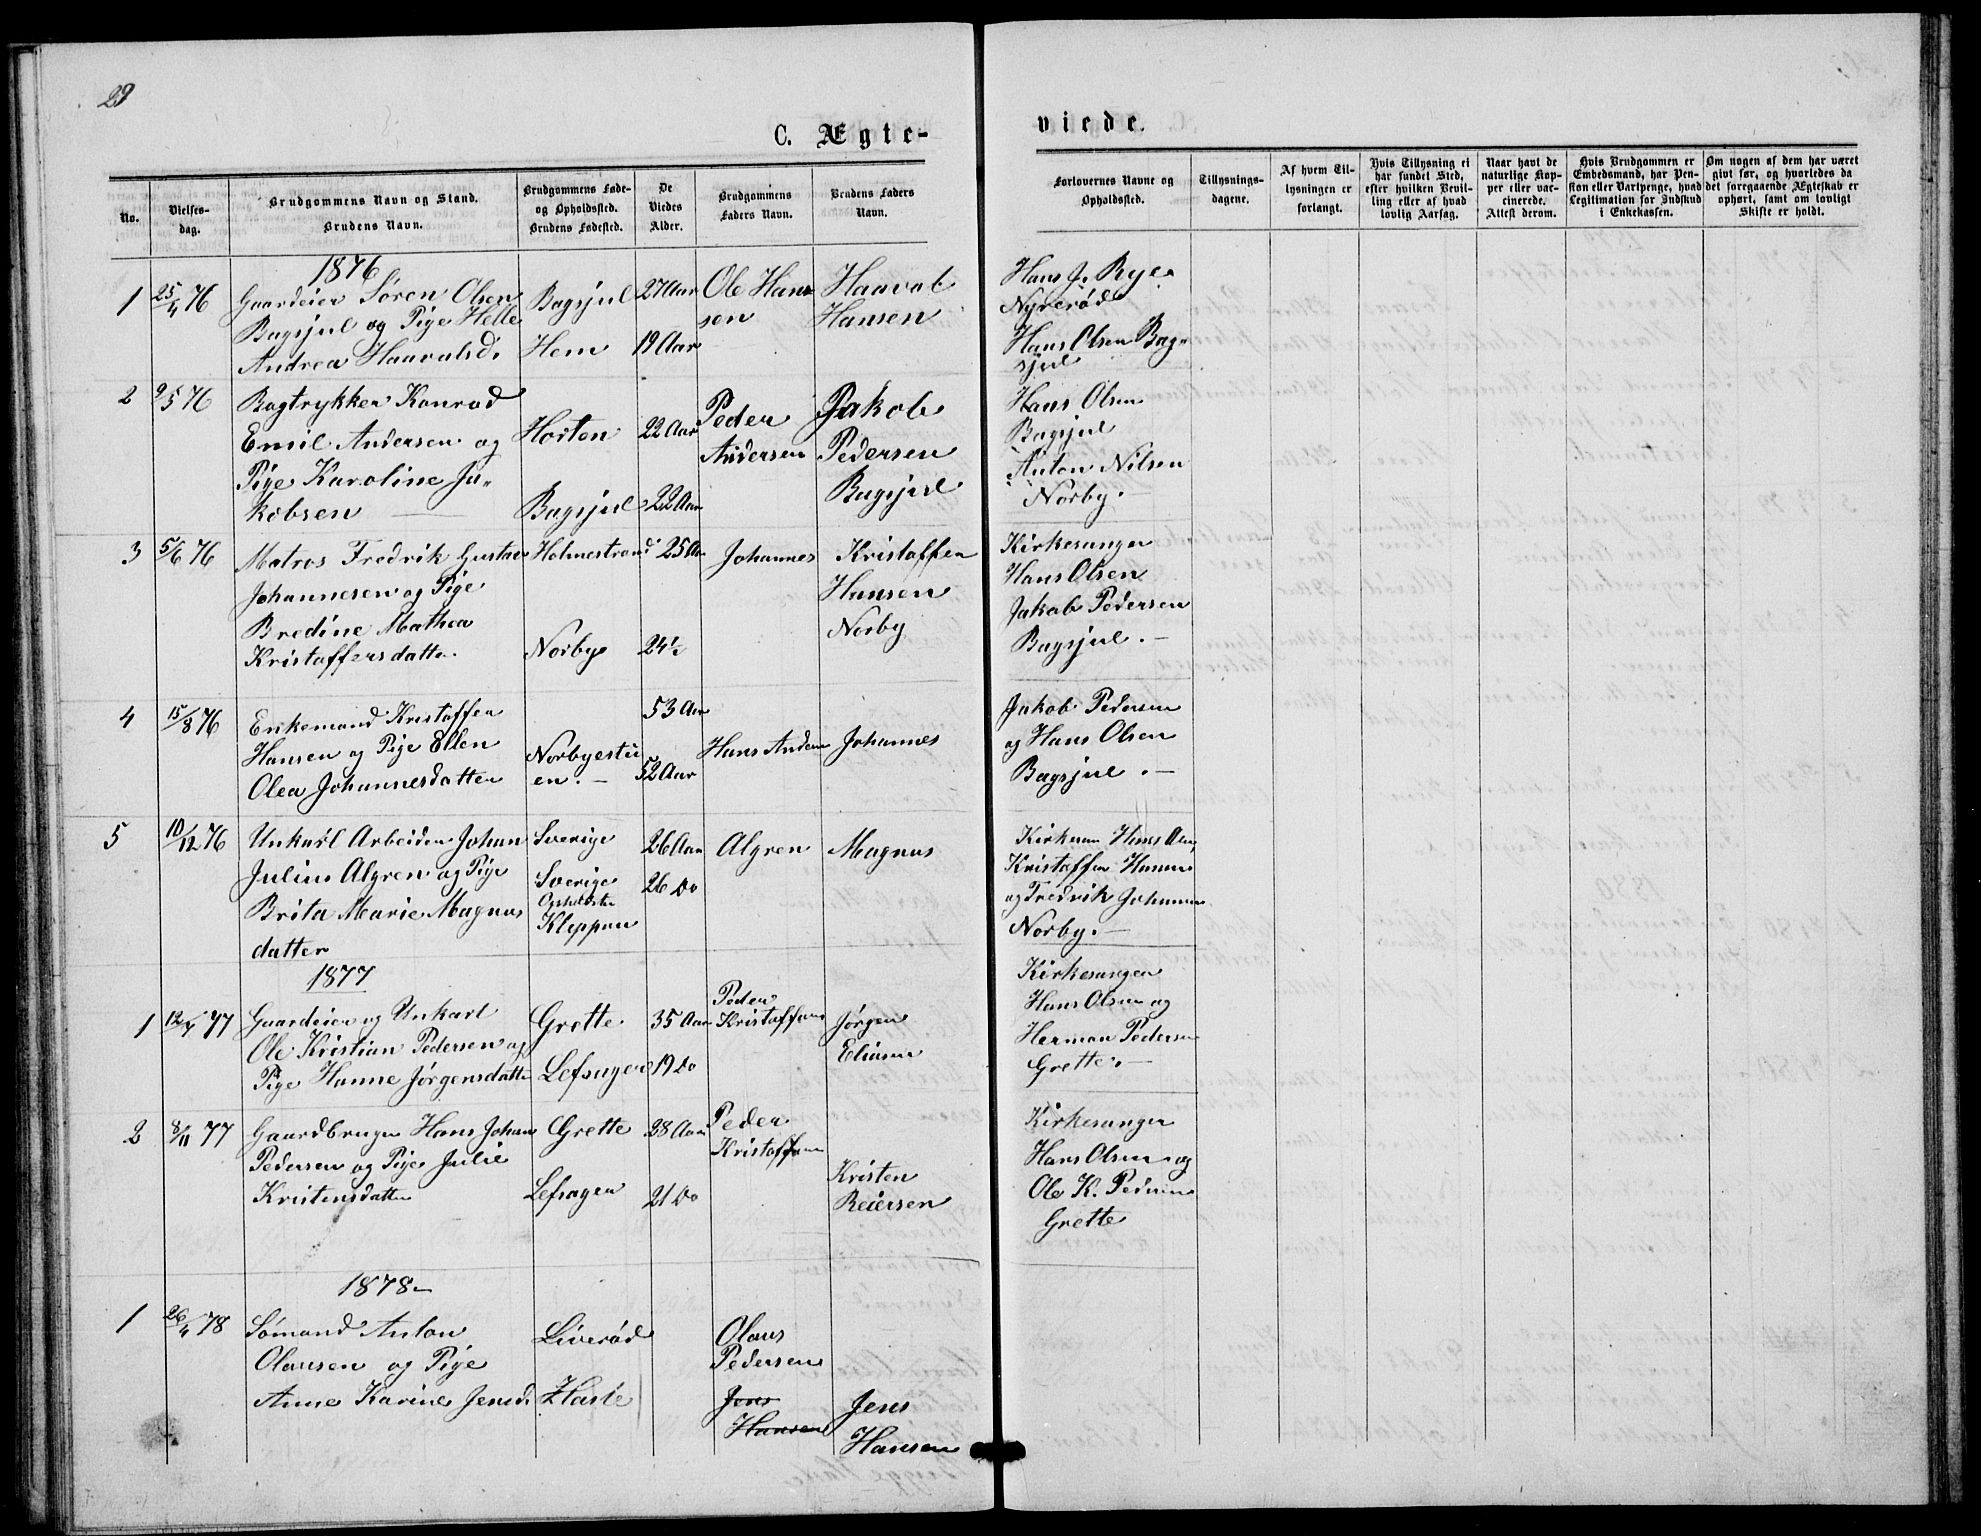 29
C. Ægte-
viede.
No.
Vielses-
dag.
Brudgommens Navn og Stand.
Brudens Navn.
Brudgommens Føde-
og Opholdssted.
Brudens Fødested.
De
Viedes
Alder.
Brudgommens
Faders Navn.
Brudens Faders
Navn.
Forlovernes Navne og
Opholdssted.
Tillysnings-
dagene.
Af hvem Til-
lysningen er
forlangt.
Hvis Tillysning ei
har fundet Sted,
efter hvilken Bevil-
ling eller af hvad
lovlig Aarsag.
Naar havt de
naturlige Kop-
per eller vac-
cinerede.
Attest derom.
Hvis Brudgommen er
Embedsmand, har Pen-
sion eller Vartpenge, hvad
Legitimation for Indskud
i Enkekassen.
Om nogen af dem har været
givt før, og hvorledes da
det foregaaende Ægteskab er
ophørt, samt om lovligt
Skifte er holdt.
1876
1 25/4 76 Gaardeier Søren Olsen Bagsjul 27 Aar Ole Han Haaval Hans J. Rye
Bagsjul og Pige Helle sen Hansen Nyrerød
Andrea Haavalsd. Hem 19 Aar Hans Olsen Bag-
sjul
2 9/5 76 Bogtrykker Konrad Peder Jakob Hans Olsen
Emil Andersen og Horten 22 Aar Andersen Pedersen Bagsjul
Pige Karoline Ja- Bagsjul Anton Nilsen
kobsen Bagsjul 22 Aar Norby.
3 5/6 76 Matros Fredrik Gustav Holmestrand 25 Aar Johannes Kristoffer Kirkesanger
Johannesen og Pige Hansen Hans Olsen
Bredine Mathea Norby Jakob Pedersen
Kristoffersdatter Norby 24½ Bagsjul.
4 15/8 76 Enkemand Kristoffer 53 Aar Jakob Pedersen
Hansen og Pige Ellen Norbyestu Hans Anders Johannes og Hans Olsen
Olea Johannesdatter en. 52 Aar Bagsjul.
5 10/12 76 Unkarl Arbeider Johan Sverige 26 Aar Algren Magnus Kirkesan Hans Olsen
Julius Algren og Pige Sverige 26 Do Kristoffer Hansen
Brita Marie Magnus Opholdste og Fredrik Johannes
datter Kleppan Norby.
1877
1 12/4 77 Gaardeier og Unkarl Grette 35 Aar Peder Jørgen Kirkesanger
Ole Kristian Pedersen og Kristoffersen Eliasen Hans Olsen og
Pige Hanne Jørgensdatter Lefsager 19 Do Herman Pedersen
Grette.
2 8/11 77 Gaardbruger Hans Johan Grette 28 Aar Peder Kirkesanger
Pedersen og Pige Julie Kristoffersen Kristen Hans Olsen og
Kristensdatter Lefsager 21 Do Reiersen Ole K. Pedersen
Grette
1878
1 26/4 78 Sømand Anton Liverød Olaus
Olausen og Pige Pedersen
Anne Karine Jensd. Hasle Jens Jens
Hansen Hansen